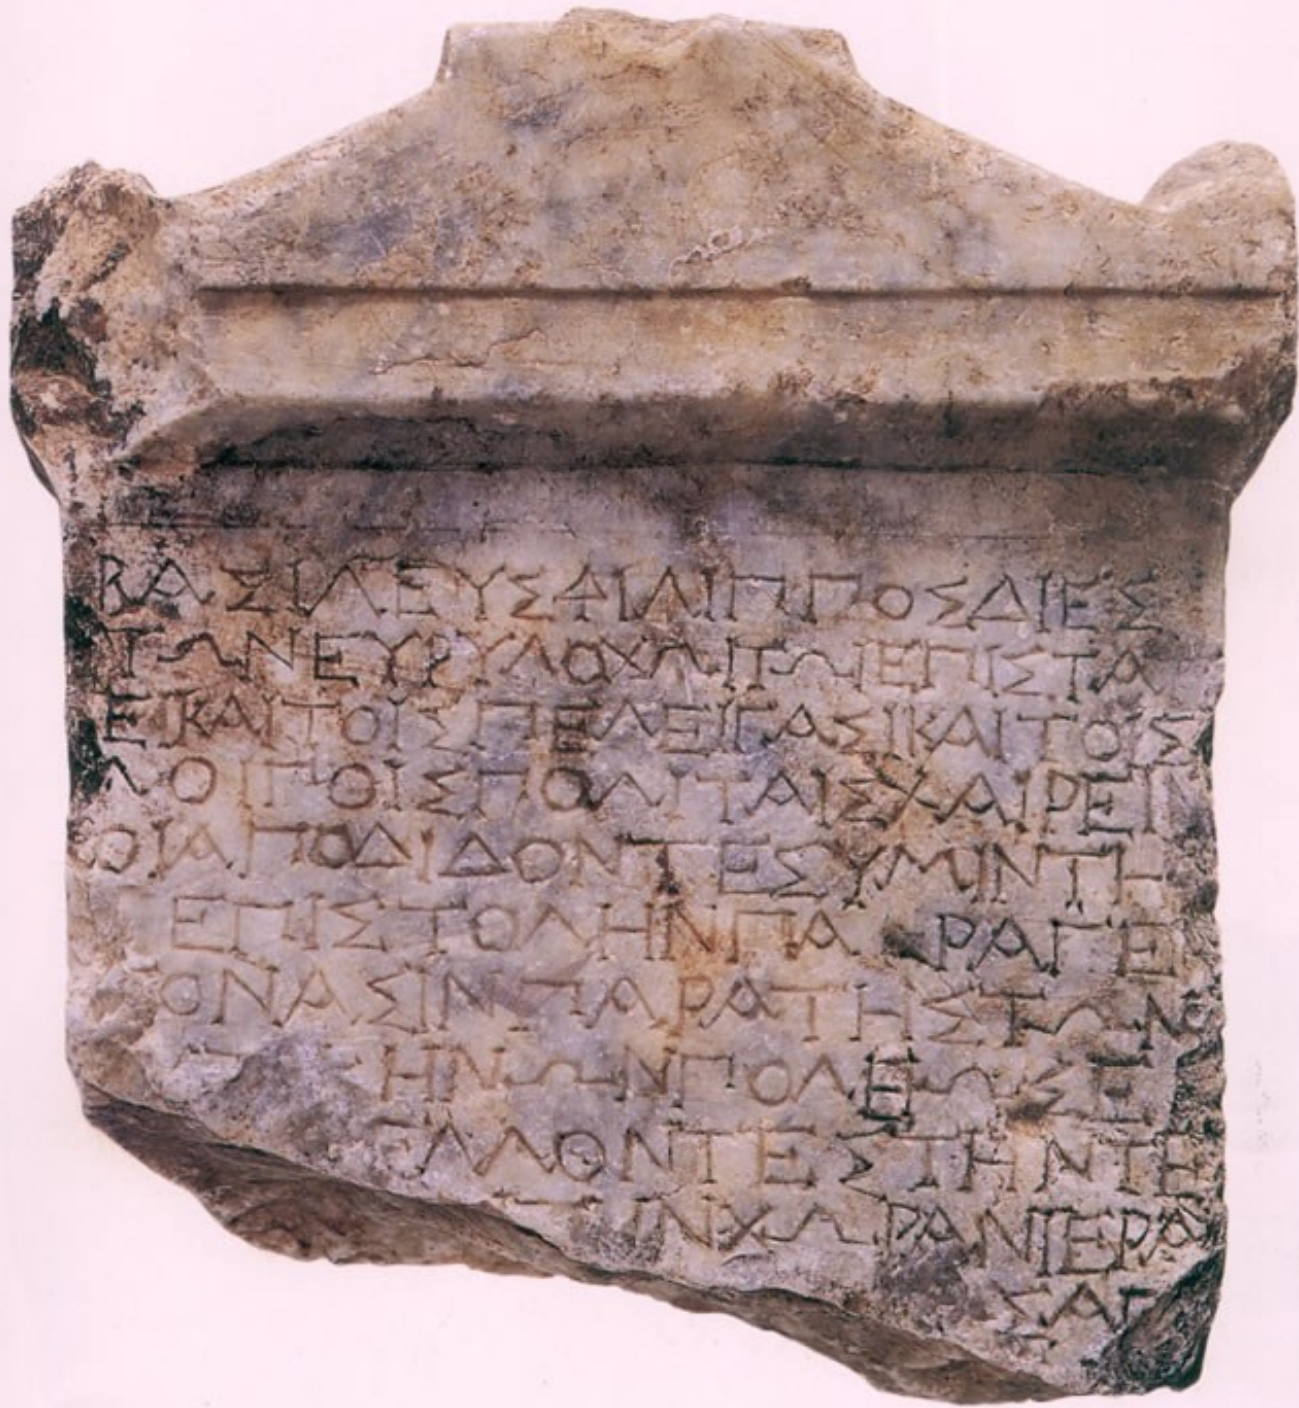 ΒΑΣΙΛΕΥΣΦΙΛΙΠΠΟΣΔΙΕΣ
ΤΩΝΕΥΡΥΛΟΧΩΙΤΩΙΕΠΙΣΤΑ
ΕΙΚΑΙΤΟΙΣΠΕΛΕΙΓΑΣΙΚΑΙΤΟΙΣ
ΛΟΙΠΟΙΣΠΟΛΙΤΑΙΣΧΑΙΡΕΙΝ
ΟΙΑΠΟΔΙΔΟΝΤΕΣΥΜΙΝΤΗ
ΕΠΙΣΤΟΛΗΝΠΑΡΑΓΕ
ΟΝΑΣΙΝΠΑΡΑΤΗΣΤΩΝ
ΗΝΩΝΠΟΛΕΩΣΕ
ΕΛΛΟΝΤΕΣΤΗΝΤΕ
ΗΝΧΩΡΑΝΙΕΡΑ
ΣΑΓ